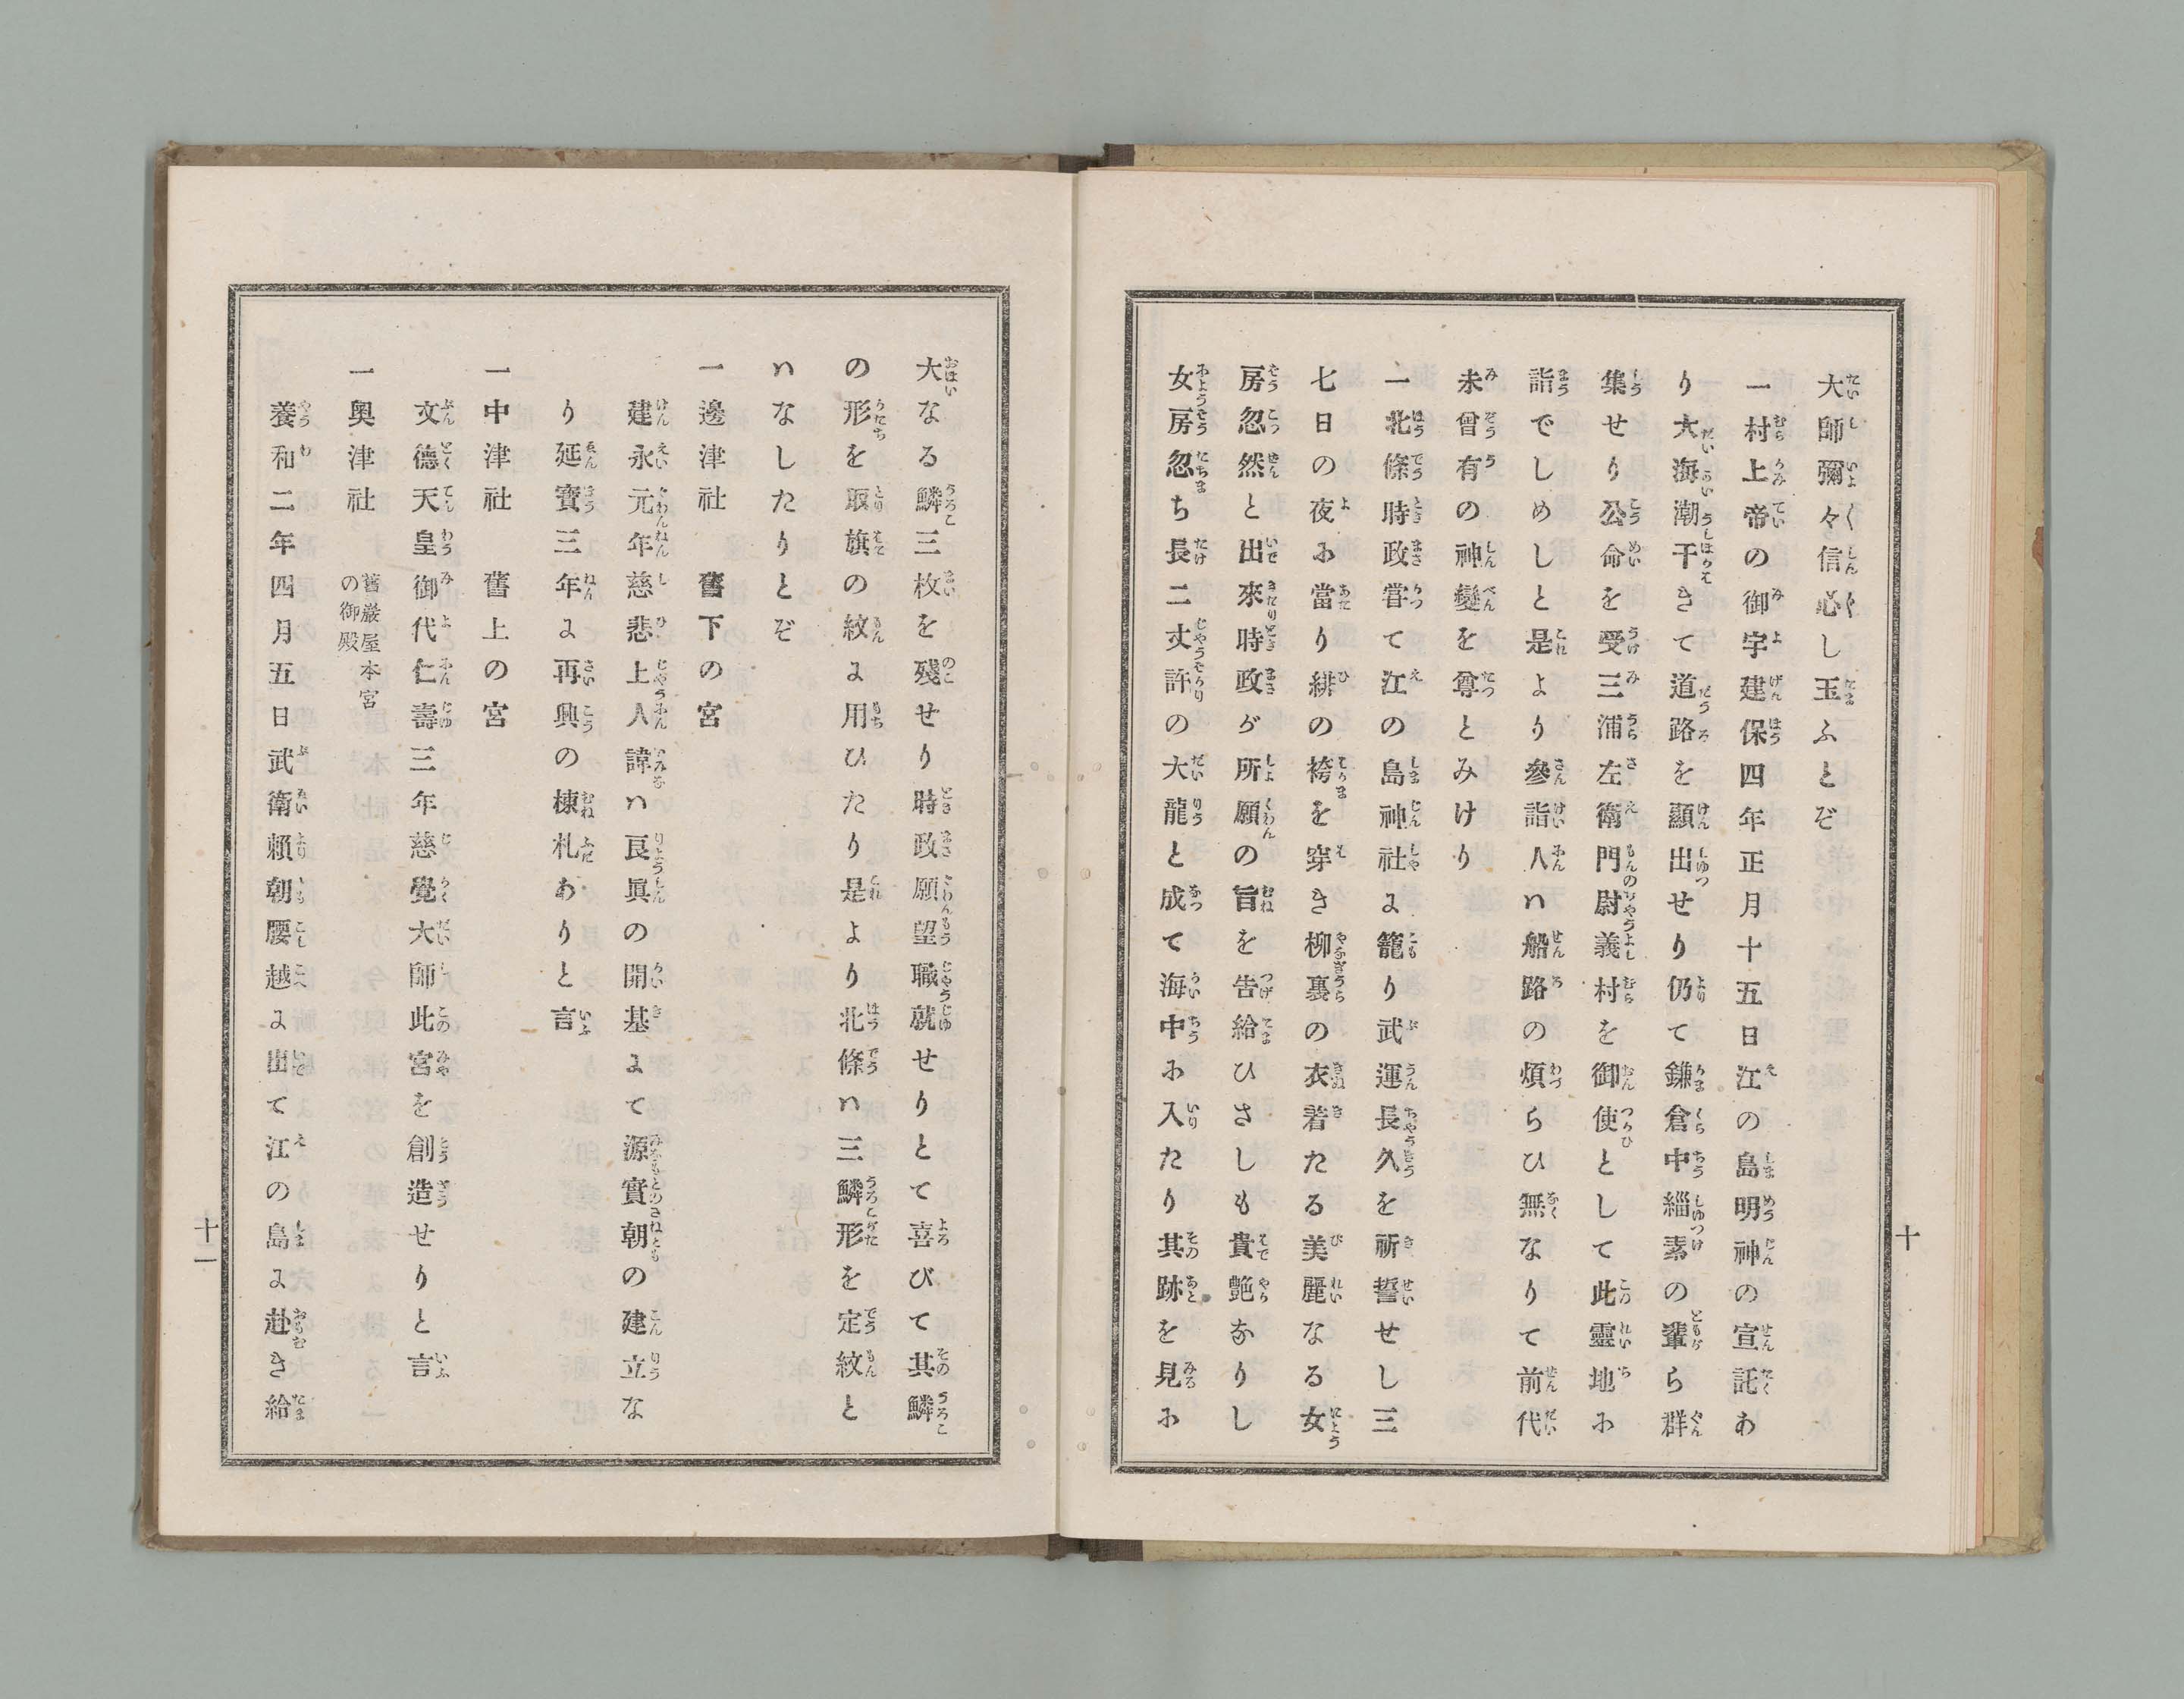 大師彌々信心し玉ふとぞ
一村上帝の御字建保四年正月十五日江の島明神の宣託あ
り大海潮干きて道路を顯出せり仍て鎌倉中緇素の輩ら群
集せり公命を受三浦左衛門尉義村を御使として此靈地に
詣でしめしと是より參詣人ハ船路の煩らひ無なりて前代
未曾有の神變を尊とみけり
一北條時政甞て江の島神社に籠り武運長久を祈誓せし三
七日の夜に當り緋の袴を穿き柳裏の衣着たる美麗なる女
房忽然と出來時政が所願の旨を告給ひさしも貴艶なりし
女房忽ち長二丈許の大龍と成て海中に入たり其跡を見に
十
大なる鱗三枚を殘せり時政願望職就せりとて喜びて其鱗
の形を取旗の紋に用ひたり是より北條ハ三鱗形を定紋と
ハなしたりとぞ
一邊津社 舊下の宮
建永元年慈悲上人諱ハ良眞の開基にて源實朝の建立な
り延寶三年に再興の棟札ありと言
一中津社 舊上の宮
文德天皇御代仁壽三年慈覺大師此宮を創造せりと言
一奧津社 舊巌屋本宮の御殿
養和二年四月五日武衛賴朝腰越に出て江の島に赴き給
十一